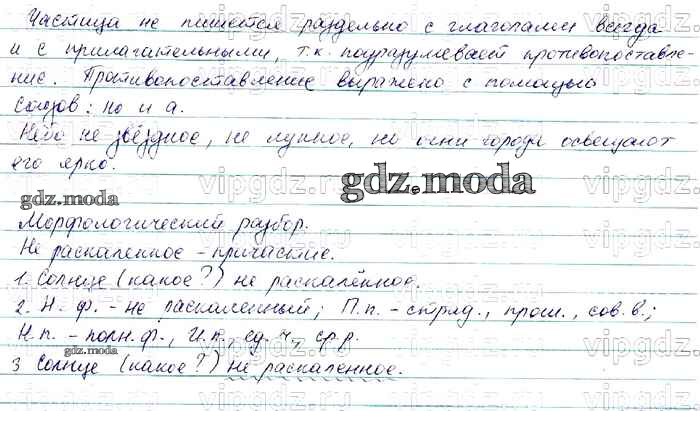 Частица не пишется раздельно с глаголами всегда
и с прилагательными, т.к. подразумевает противопоставле-
ние. Противопоставление выражено с помощью
союзов: но и а.
Небо не звёздное, не лунное, но огни города освещают
его ярко.
gdz.moda
gdz.moda
Морфологический разбор.
Не раскаленное - причастие.
1. Солнце (какое?) не раскалённое.
2. Н. ф. - не раскаленный; П.п. - страд., прош., сов. в.;
Н.п. - полн. ф., И.п., ед. ч., ср.р.
gdz.moda
3 Солнце (какое?) не раскаленное.
vipgdz.ru